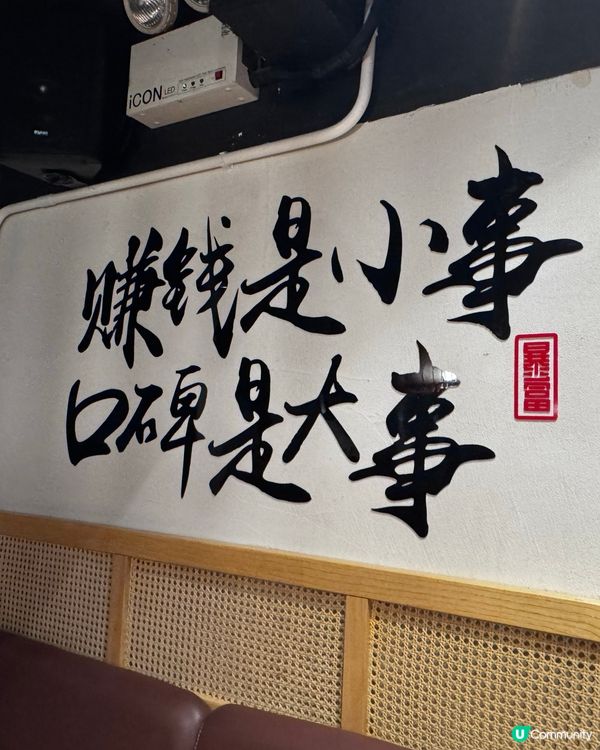 iCON LED
赚钱是小事
口碑是大事
暴富
U Community